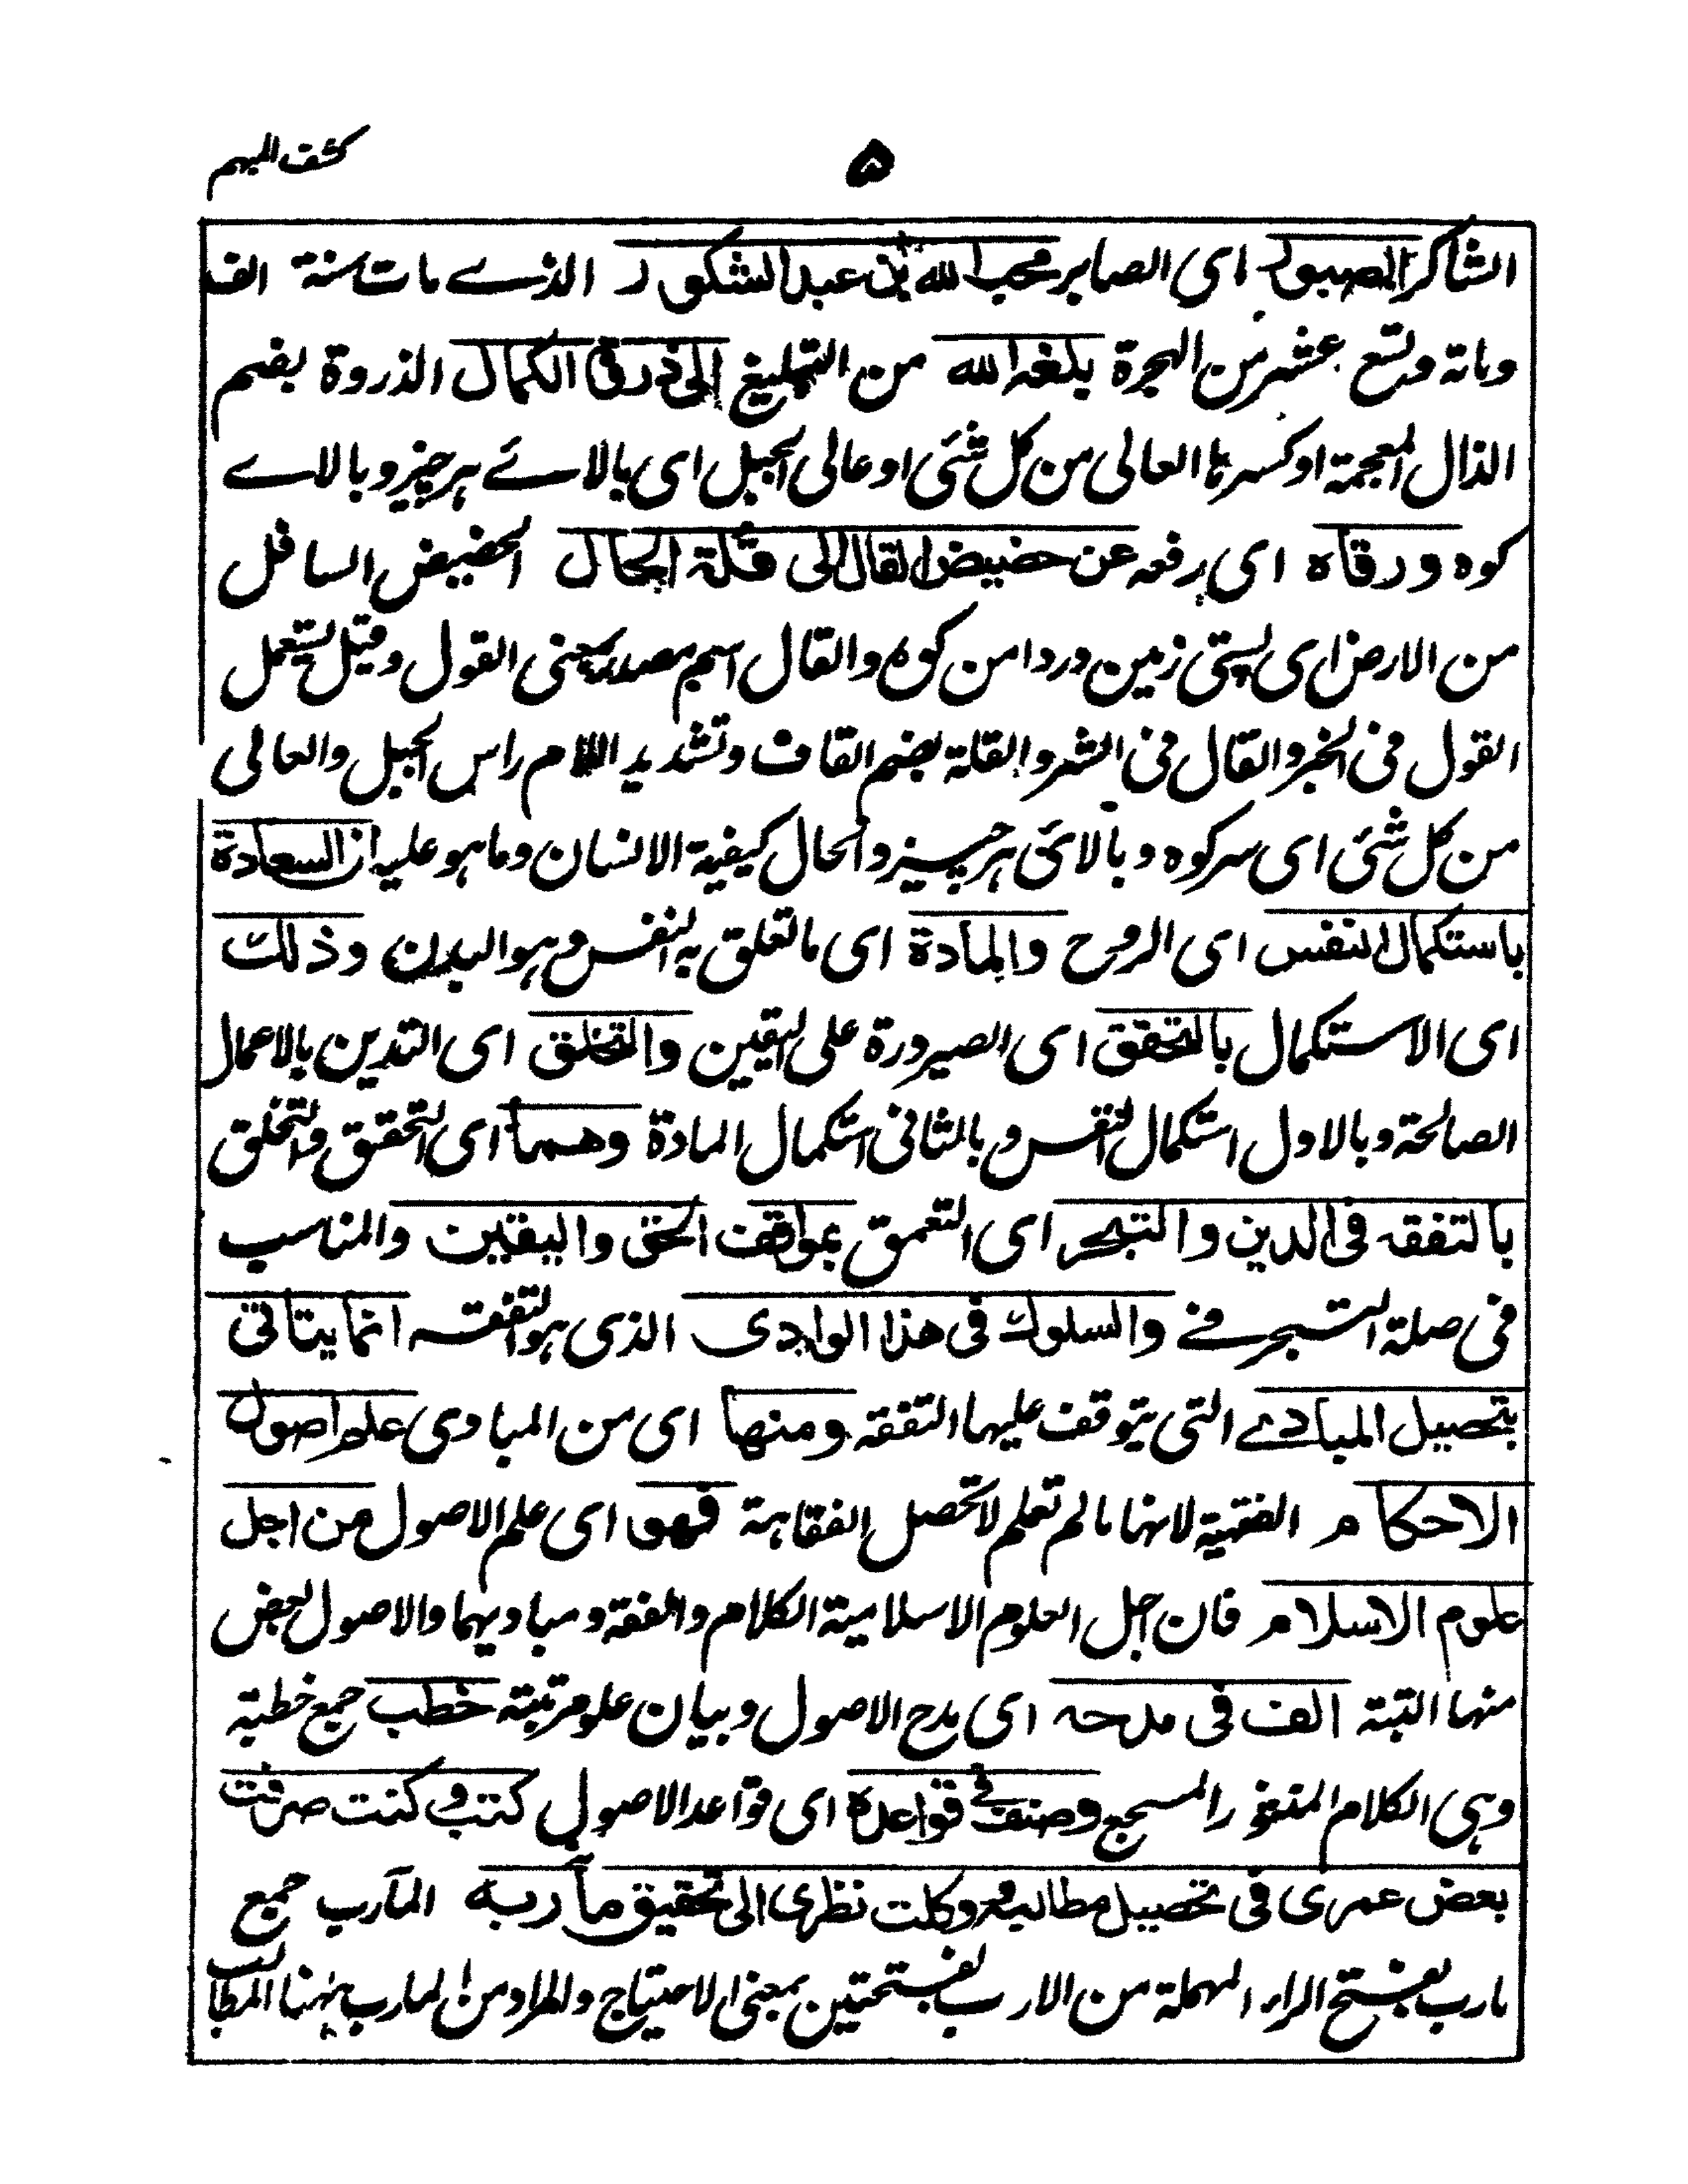 كشف المبهم
۵
الشاكر الصبور اى الصابر محب الله بن عبد الشكور الذے مات سنة الف
ومائة وتسع عشر من الهجرة بلغه الله من التبليغ إلى ذروة الكمال الذروة بضم
الذال المعجمة او كسرها العالى من كل شئى او عالى الجبل اى بالائے ہر چيز وبالاے
كوه ورقاه اى رفعه عن حضيض القال الى قلة الحال الحضيض السافل
من الارض اى پستى زمين ودر دامن كوه والقال اسم مصدر بمعنى القول وقيل يستعمل
القول فى الخير والقال فى الشر والقلة بضم القاف وتشديد اللام راس الجبل والعالى
من كل شئى اى سر كوه وبالائى ہر چيز والحال كيفية الانسان وما هو عليه ان السعادة
باستكمال النفس اى الروح والمادة اى ما تعلق به النفس وهو البدن وذلك
اى الاستكمال بالتحقق اى الصيرورة على اليقين والتخلق اى التدين بالاعمال
الصالحة وبالاول استكمال النفس وبالثانى استكمال المادة وهما اى التحقق والتخلق
بالتفقه فى الدين والتبحر اى التعمق بمواقف الحق واليقين والمناسب
فى صلة التبحر فے والسلوك فى هذا الوادى الذى هو التفقه انما يتاتى
بتحصيل المبادے التى يتوقف عليها التفقه ومنها اى من المبادى علم اصول
الاحكام الفقهية لانها ما لم تعلم لا تحصل الفقاهة فهو اى علم الاصول من اجل
علوم الاسلام فان جل العلوم الاسلامية الكلام والفقة ومباديهما والاصول بعض
منها البتة الف فى مدحه اى مدح الاصول وبيان علو مرتبته خطب جمع خطبة
وهى الكلام المنثور المسجع وصنف فے قواعده اى قواعد الاصول كتب وكنت صرفت
بعض عمرى فى تحصيل مطالبه ووكلت نظرى الى تحقيق مآربه المآرب جمع
مارب بفتح الراء المهملة من الارب بفتحتين بمعنى الاحتياج والمراد من المارب ههنا المطالب